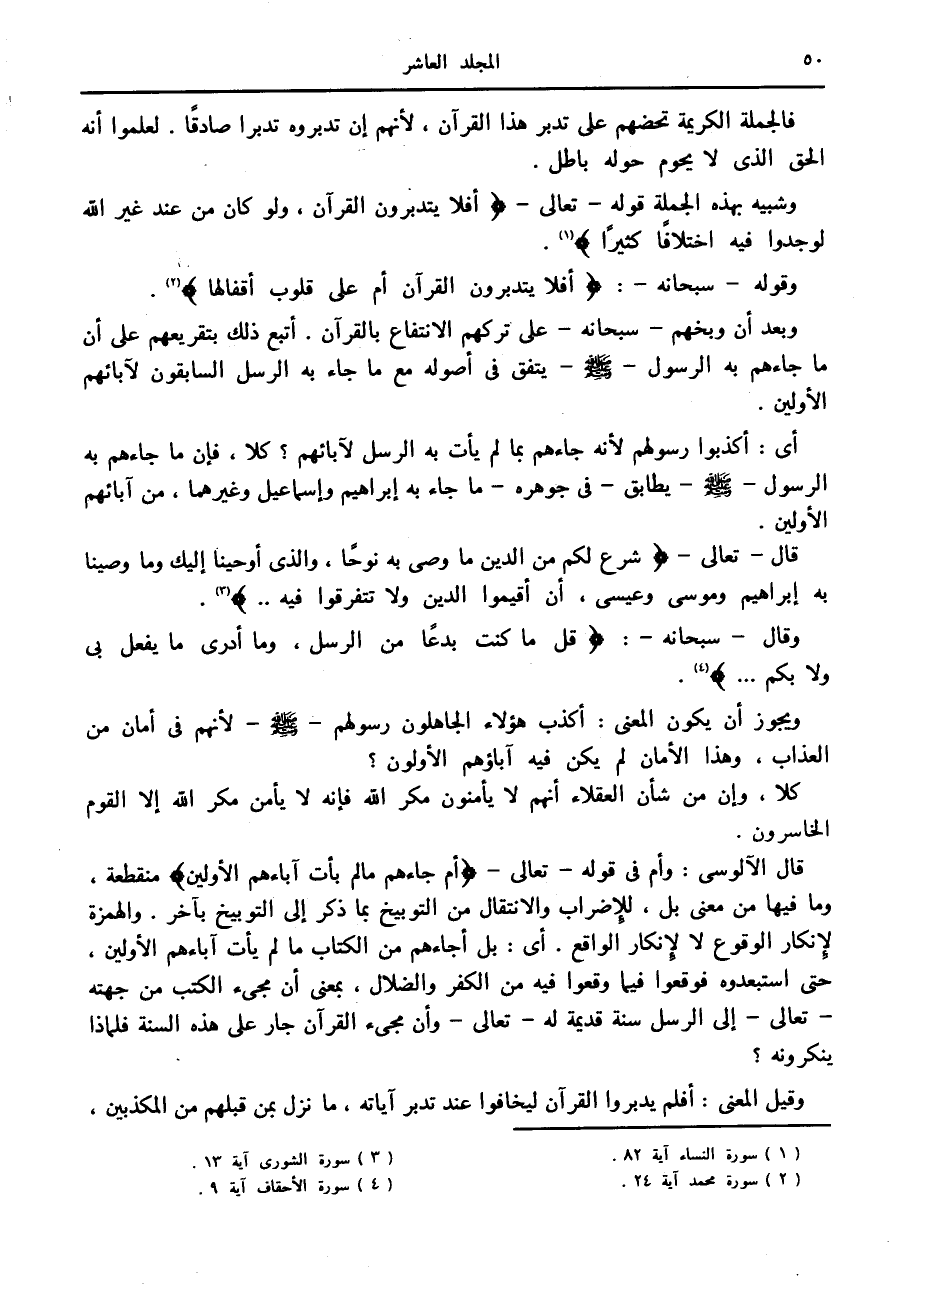 ٥٠
المجلد العاشر
فالجملة الكريمة تحضهم على تدبر هذا القرآن ، لأنهم إن تدبروه تدبرا صادقًا . لعلموا أنه
الحق الذى لا يحوم حوله باطل .
وشبيه بهذه الجملة قوله – تعالى – ﴿ أفلا يتدبرون القرآن ، ولو كان من عند غير الله
لوجدوا فيه اختلافًا كثيرًا ﴾(١) .
وقوله – سبحانه – : ﴿ أفلا يتدبرون القرآن أم على قلوب أقفالها ﴾(٢) .
وبعد أن وبخهم – سبحانه – على تركهم الانتفاع بالقرآن . أتبع ذلك بتقريعهم على أن
ما جاءهم به الرسول – ﷺ – يتفق فى أصوله مع ما جاء به الرسل السابقون لآبائهم
الأولين .
أى : أكذبوا رسولهم لأنه جاءهم بما لم يأت به الرسل لآبائهم ؟ كلا ، فإن ما جاءهم به
الرسول – ﷺ – يطابق – فى جوهره – ما جاء به إبراهيم وإسماعيل وغيرهما ، من آبائهم
الأولين .
قال – تعالى – ﴿ شرع لكم من الدين ما وصى به نوحًا ، والذى أوحينا إليك وما وصينا
به إبراهيم وموسى وعيسى ، أن أقيموا الدين ولا تتفرقوا فيه .. ﴾(٣) .
وقال – سبحانه – : ﴿ قل ما كنت بدعًا من الرسل ، وما أدرى ما يفعل بى
ولا بكم ... ﴾(٤) .
ويجوز أن يكون المعنى : أكذب هؤلاء الجاهلون رسولهم – ﷺ – لأنهم فى أمان من
العذاب ، وهذا الأمان لم يكن فيه آباؤهم الأولون ؟
كلا ، وإن من شأن العقلاء أنهم لا يأمنون مكر الله فإنه لا يأمن مكر الله إلا القوم
الخاسرون .
قال الآلوسى : وأم فى قوله – تعالى – ﴿أم جاءهم مالم يأت آباءهم الأولين﴾ منقطعة ،
وما فيها من معنى بل ، للإضراب والانتقال من التوبيخ بما ذكر إلى التوبيخ بآخر . والهمزة
لإنكار الوقوع لا لإنكار الواقع . أى : بل أجاءهم من الكتاب ما لم يأت آباءهم الأولين ،
حتى استبعدوه فوقعوا فيما وقعوا فيه من الكفر والضلال ، بمعنى أن مجىء الكتب من جهته
– تعالى – إلى الرسل سنة قديمة له – تعالى – وأن مجىء القرآن جار على هذه السنة فلماذا
ينكرونه ؟
وقيل المعنى : أفلم يدبروا القرآن ليخافوا عند تدبر آياته ، ما نزل بمن قبلهم من المكذبين ،
( ١ ) سورة النساء آية ٨٢ .
( ٢ ) سورة محمد آية ٢٤ .
( ٣ ) سورة الشورى آية ١٣ .
( ٤ ) سورة الأحقاف آية ٩ .